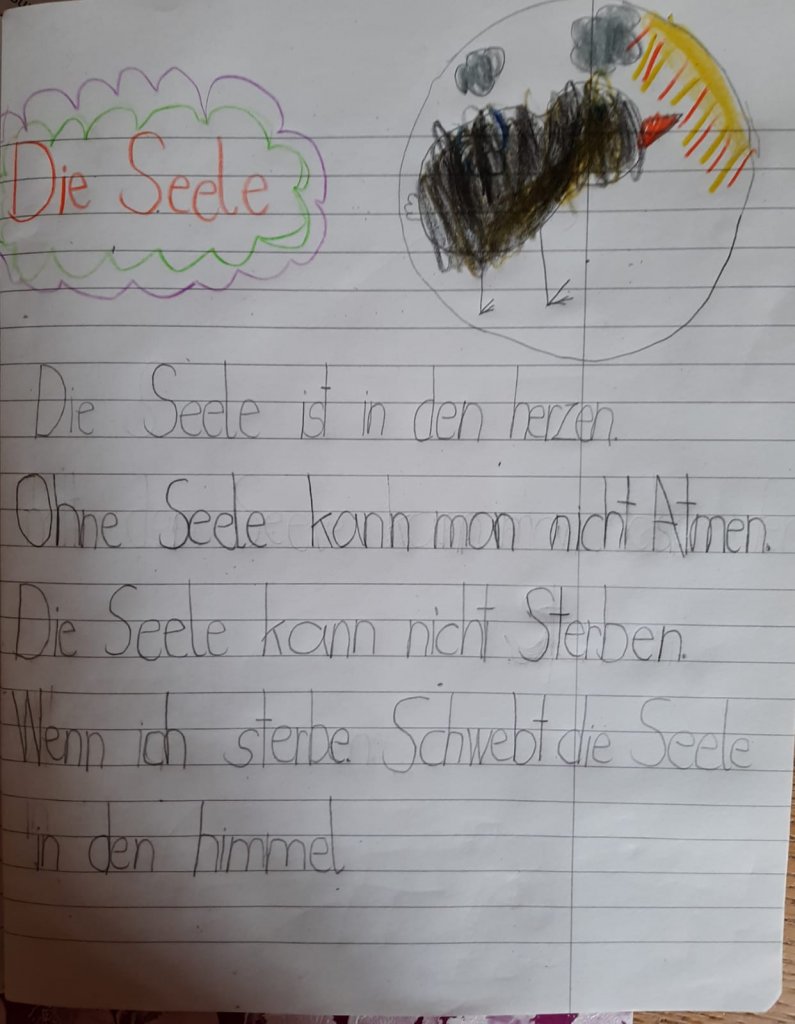 Die Seele
Die Seele ist in den herzen.
Ohne Seele kann man nicht Atmen.
Die Seele kann nicht Sterben.
Wenn ich sterbe. Schwebt die Seele
in den himmel